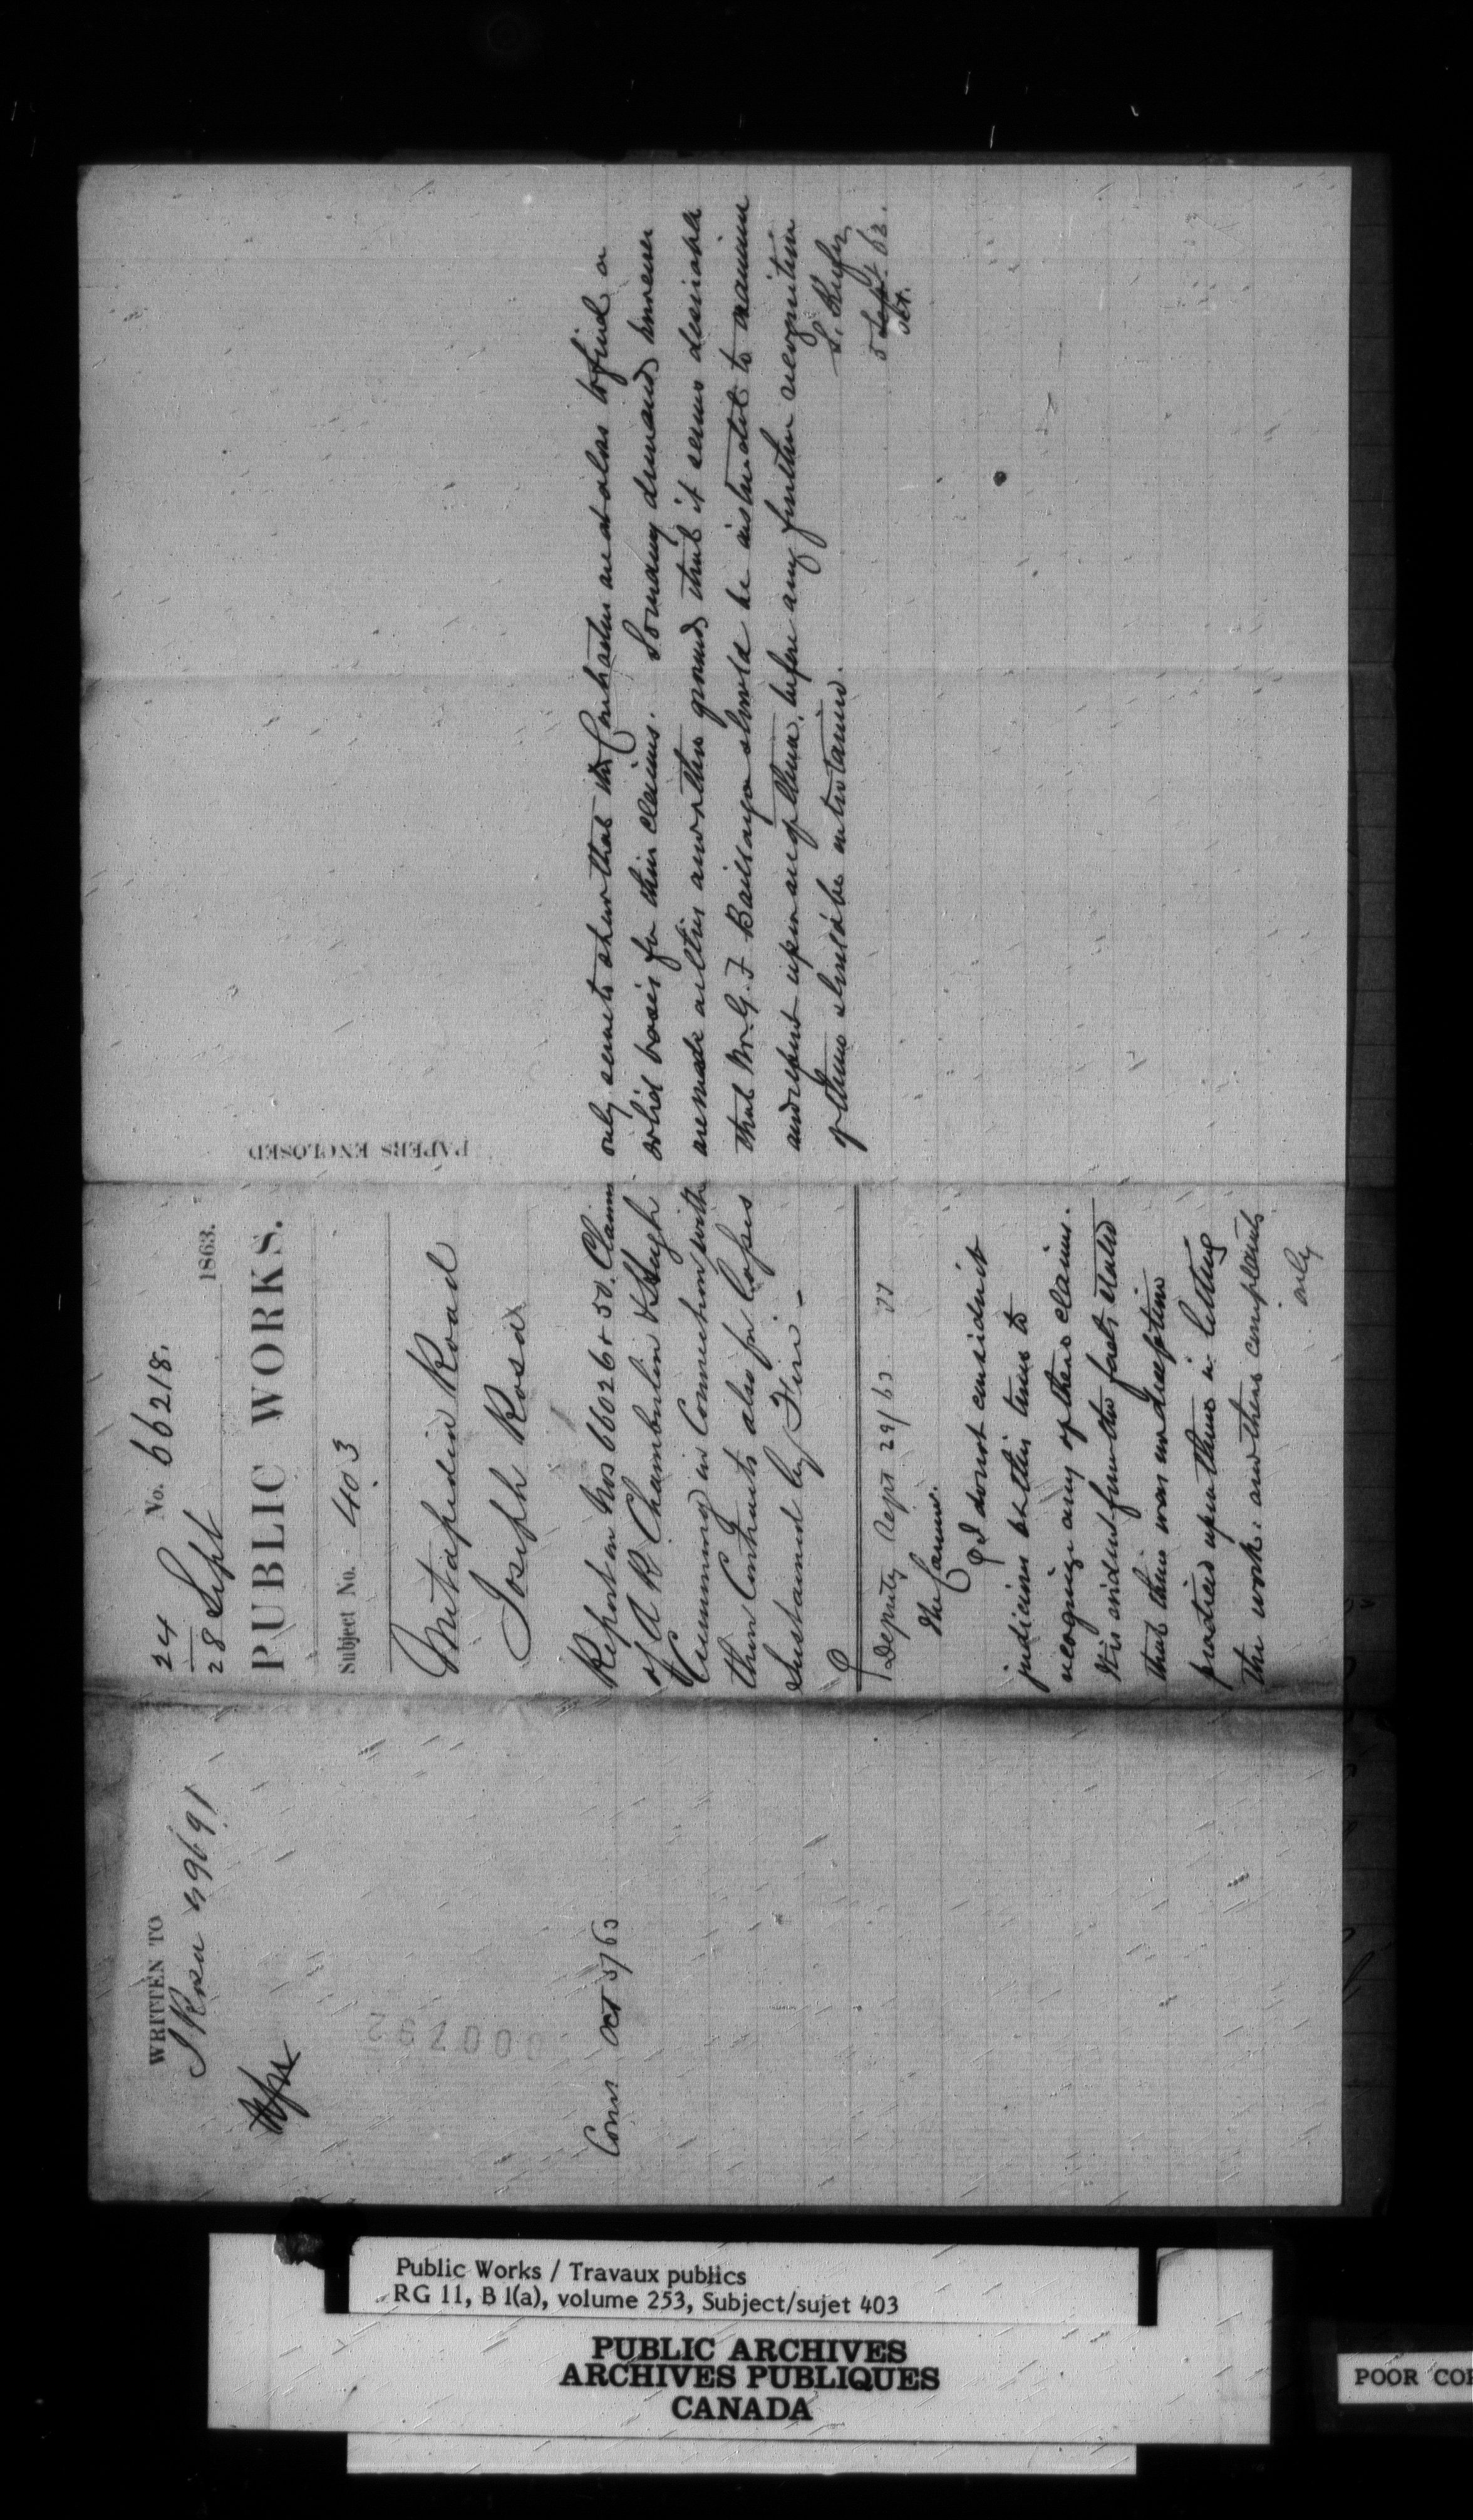 WRITTEN TO
J Rosa 49691
Comr Oct 5/63
24 No. 66218.
28 Sept 1863.
PUBLIC WORKS.
Subject No. 403
Metapedia Road
Joseph Rosa
Report on Nos 66026 & 50. Claims
of A R Chamberlin & Hugh
Cumming in Connection with
their Contracts also for Losses
Sustained by Fire -
Deputy Sept 29/63
The Comr.
I do not consider it
judicious at this time to
recognize any of these claims.
It is evident from the facts stated
that there was no deception
practised upon them in letting
the work: and these complaints
only
PAPERS ENCLOSED
only serve to show that the Contractors are at a loss to find a
solid basis for their claims. So many demands however
are made as this and other grounds that it seems desirable
that Mr. G. F. Baillairge should be instructed to examine
and report upon all of them, before any further recognition
of them should be entertained.
S. Keefer
5 Sept. 63.
Oct.
Public Works / Travaux publics
RG 11, B 1(a), volume 253, Subject/sujet 403
PUBLIC ARCHIVES
ARCHIVES PUBLIQUES
CANADA
POOR COP